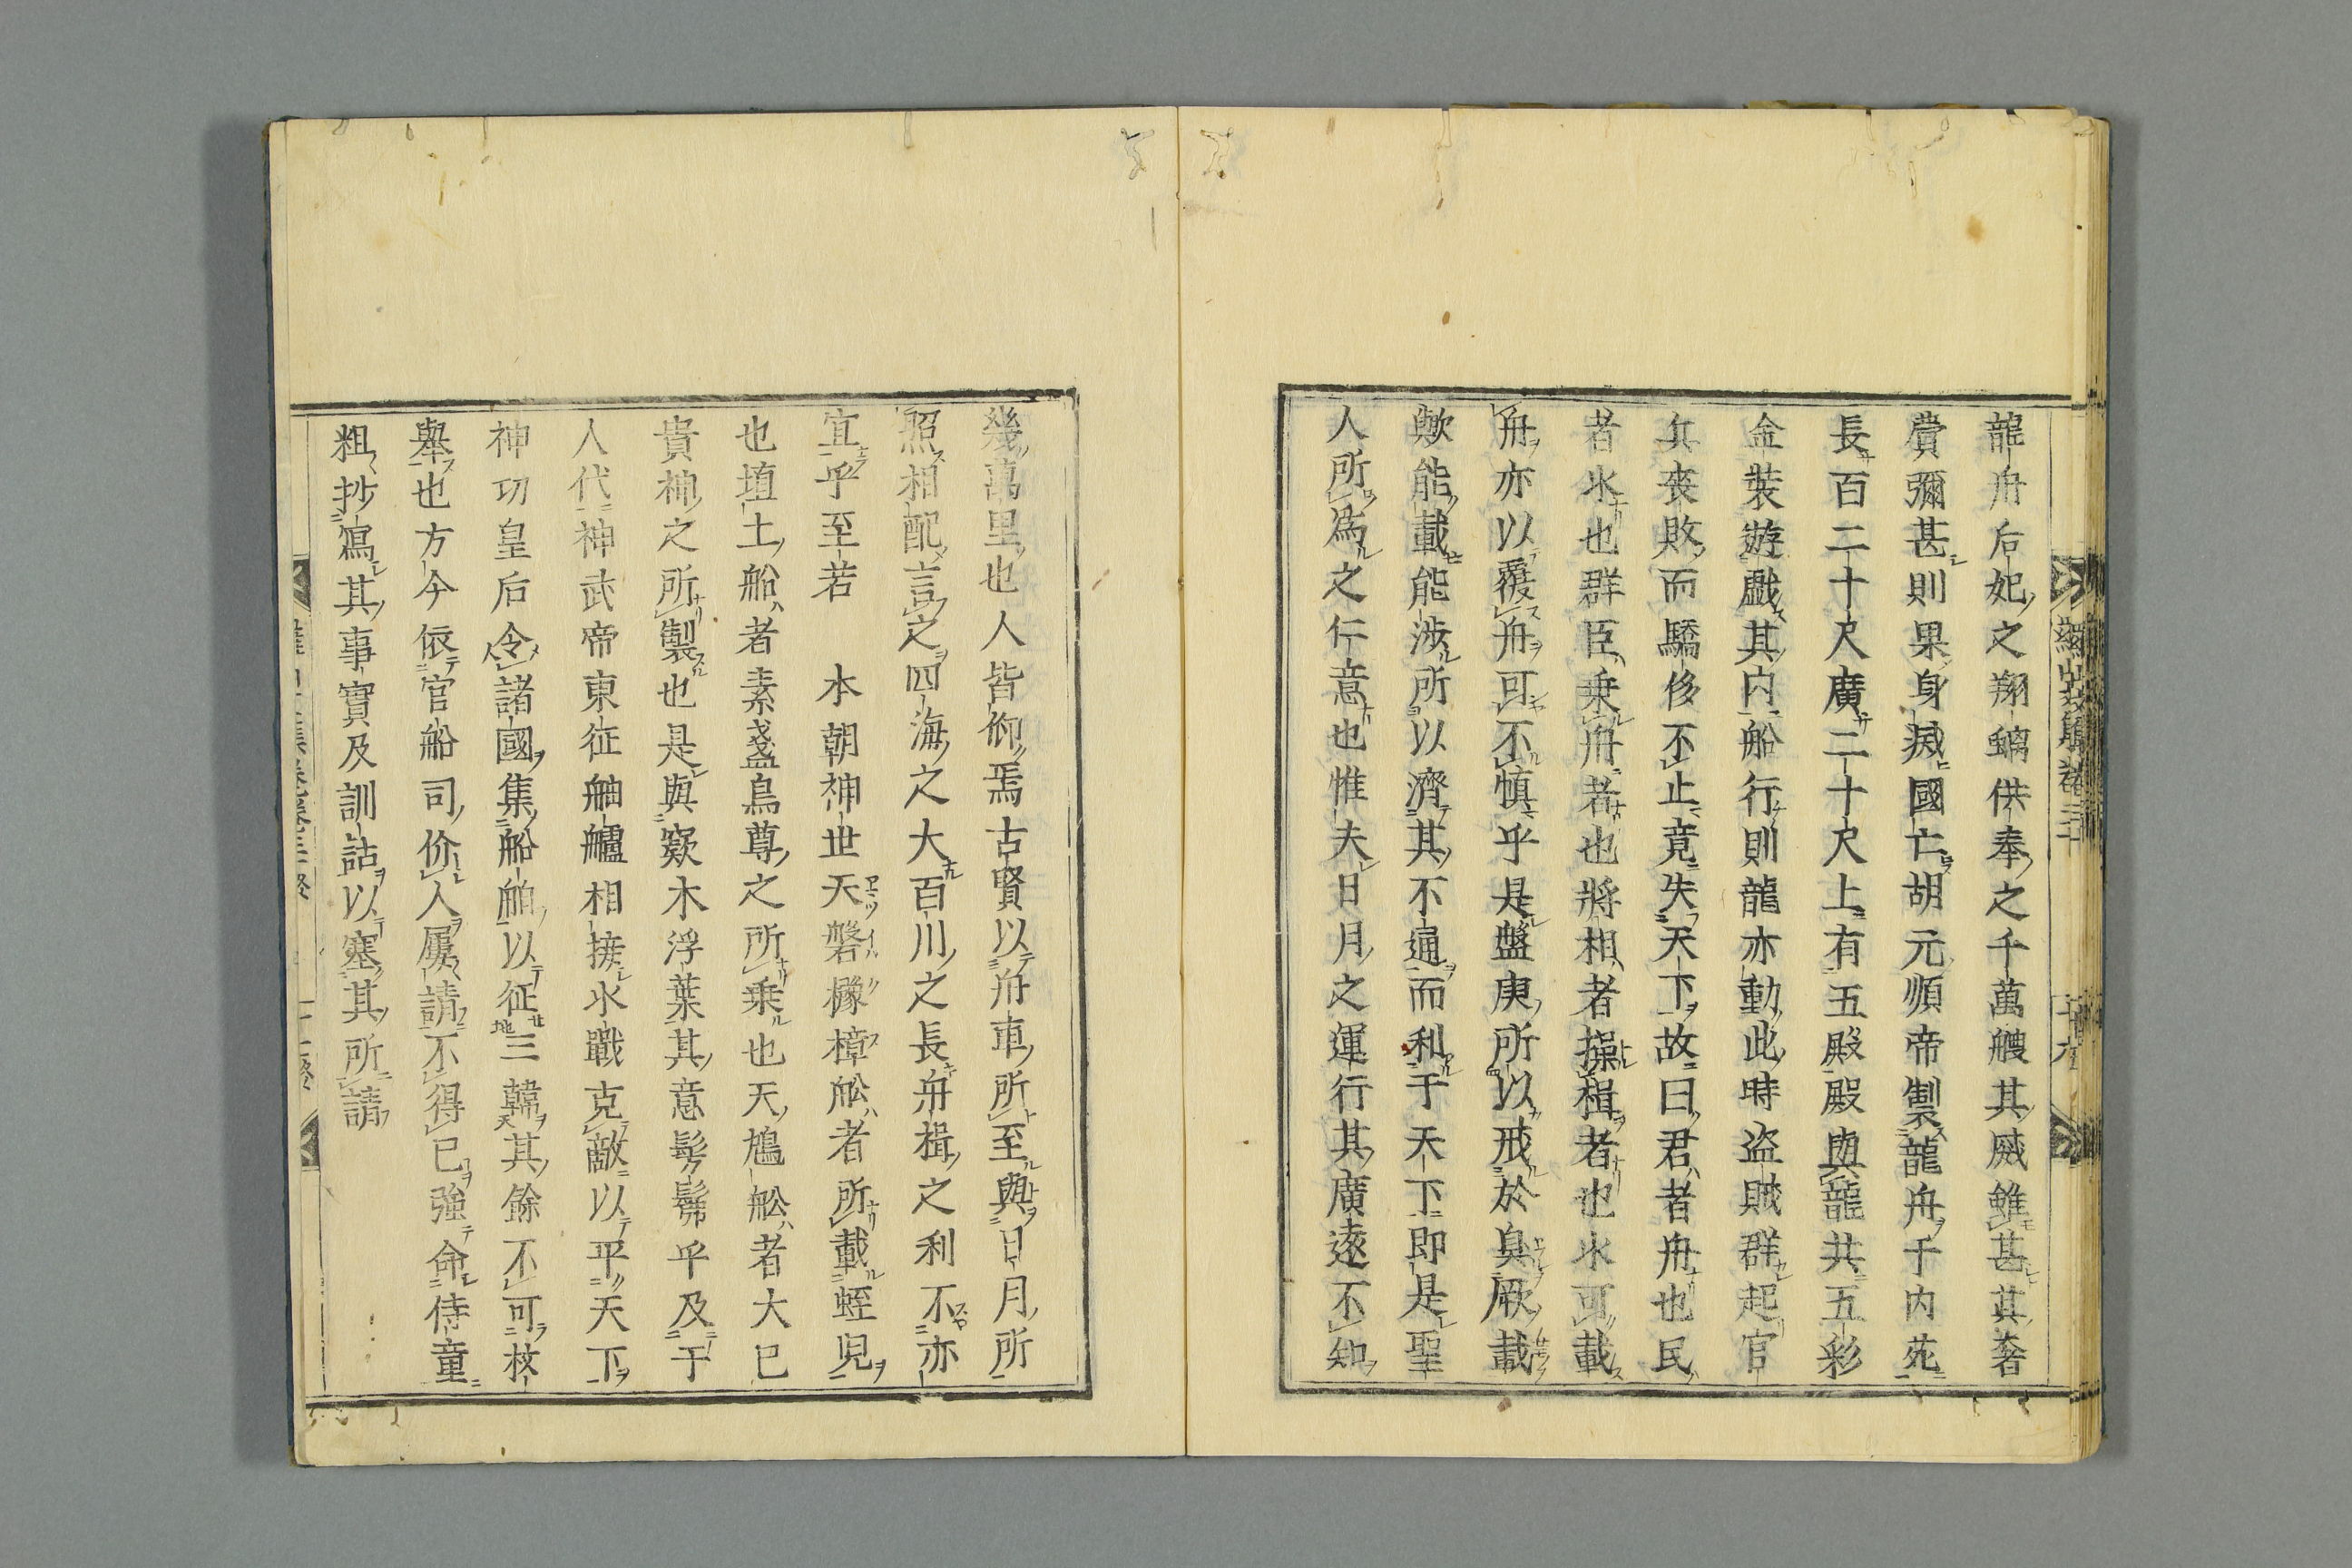 龍舟后妃之翔螭供奉之千萬艘其感雖甚其奢
費彌甚則果身滅國亡胡元順帝製龍舟于内苑
長百二十尺廣二十尺上有五殿殿與龍共五彩
金裝遊戲其内船行則龍亦動此時盗賊群起官
兵喪敗而驕侈不止竟失天下故曰君者舟也民
者水也群臣乗舟者也將相者操楫者也水可載
舟亦以覆舟可不慎乎是盤庚所以戒於臭厥載
歟能載能渉所以濟其不通而利于天下即是聖
人所為之仁意也惟夫日月之運行其廣遠不知
幾萬里也人皆仰焉古賢以舟車所至與日月所
照相配言之四海之大百川之長舟楫之利不亦
宜乎至若　本朝神世天磐櫲樟舩者所載蛭兒
也埴土船者素盞烏尊之所乗也天鴿舩者大已
貴神之所製也是與窾木浮葉其意髣髴乎及于
人代神武帝東征舳艫相接水戰克敵以平天下
神功皇后令諸國集船舶以征三韓其餘不可枚
舉也方今依官船司价人屢請不得已強命侍童
粗抄寫其事實及訓詁以塞其所請